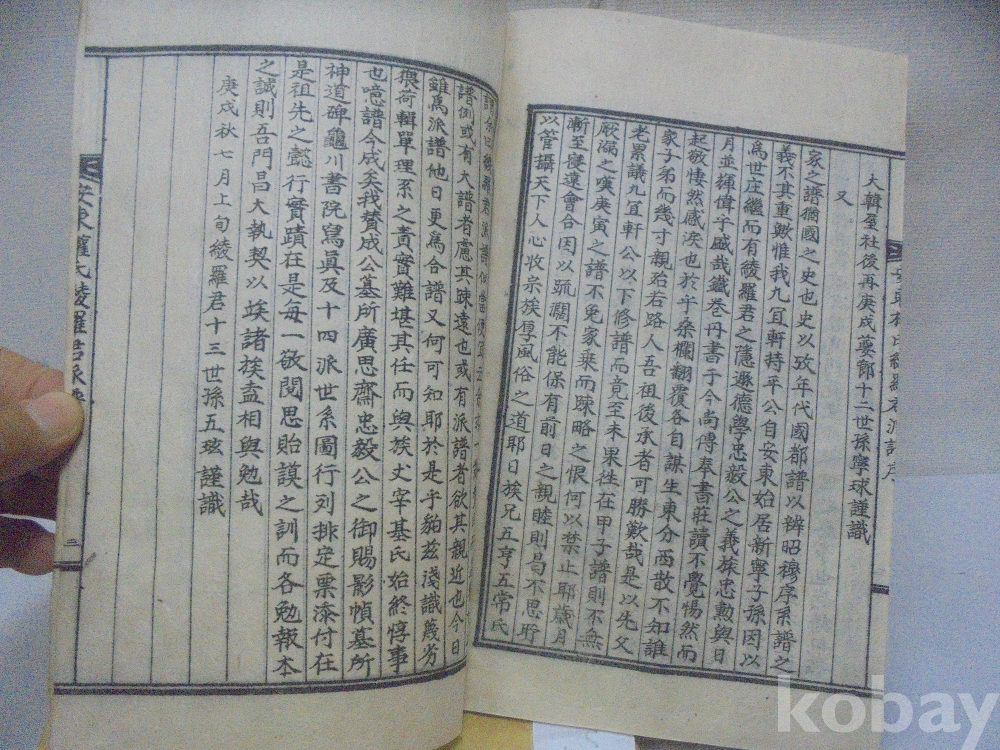 大韓屋社後再庚戌蔞鄧十二世孫寧球謹識
又
家之譜猶國之史也史以攷年代國都譜以辨昭穆序系譜之
義不其重歟惟我九宜軒持平公自安東始居新寧子孫因以
爲世庄繼而有綾羅君之隱遯德學忠毅公之義旅忠勳與日
月並輝偉乎盛哉鐵卷丹書于今尚傳奉書莊讀不覺惕然而
起敬悽然感淚也於乎桑欄翻覆各自謀生東分西散不知誰
家子弟而幾寸親殆右路人吾祖後承者可勝歎哉是以先父
老累議九宜軒公以下修譜而竟至未果徃在甲子譜則不無
厥漏之嘆庚寅之譜不免家乘而踈略之恨何以禁止耶歲月
漸至寖遠會合因以疏濶不能保有前日之親睦則曷不思所
以管攝天下人心收宗族厚風俗之道耶日族兄五亨五常氏
譜例或有大譜者慮其踈遠也或有派譜者欲其親近也今日
雖爲派譜他日更爲合譜又何可知耶於是乎貽玆淺識蔑劣
猥荷輯單理系之責實難堪其任而與族丈宰基氏始終惇事
也噫譜今成矣我贊成公墓所廣思齋忠毅公之御賜影幀墓所
神道碑龜川書院寫眞及十四派世系圖行列排定票添付在
是祖先之懿行實蹟在是每一敬閱思貽謨之訓而各勉報本
之誠則吾門昌大執契以竢諸族盍相與勉哉
庚戌秋七月上旬綾羅君十三世孫五玹謹識
安東權氏綾羅君派譜
三
kobay